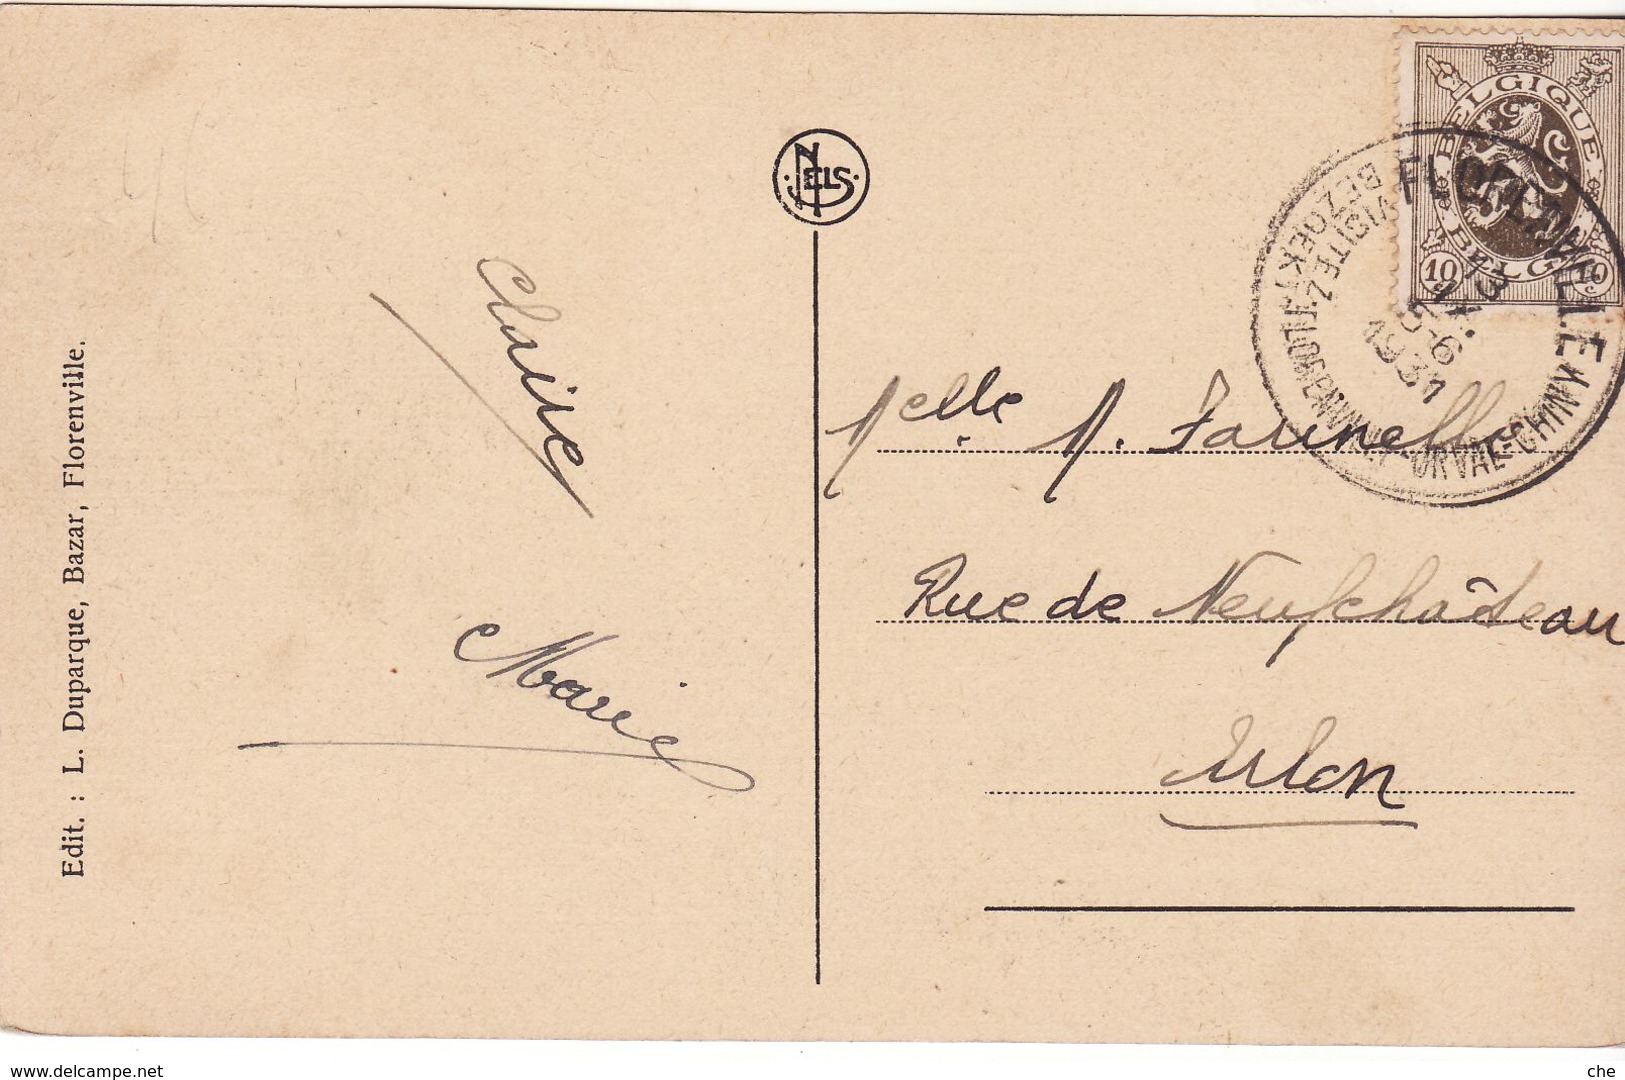 Edit. : L. Duparque, Bazar, Florenville.
Claire
Marie
NELS
BELGIQUE
BELGIË
10c 10c
FLORENVILLE
VISITEZ
BEZOEKT
FLORENVILLE-ORVAL-CHINY
13
5-6
1931
Melle. M. Farinelle
Rue de Neufchâteau
Arlon
www.delcampe.net
che